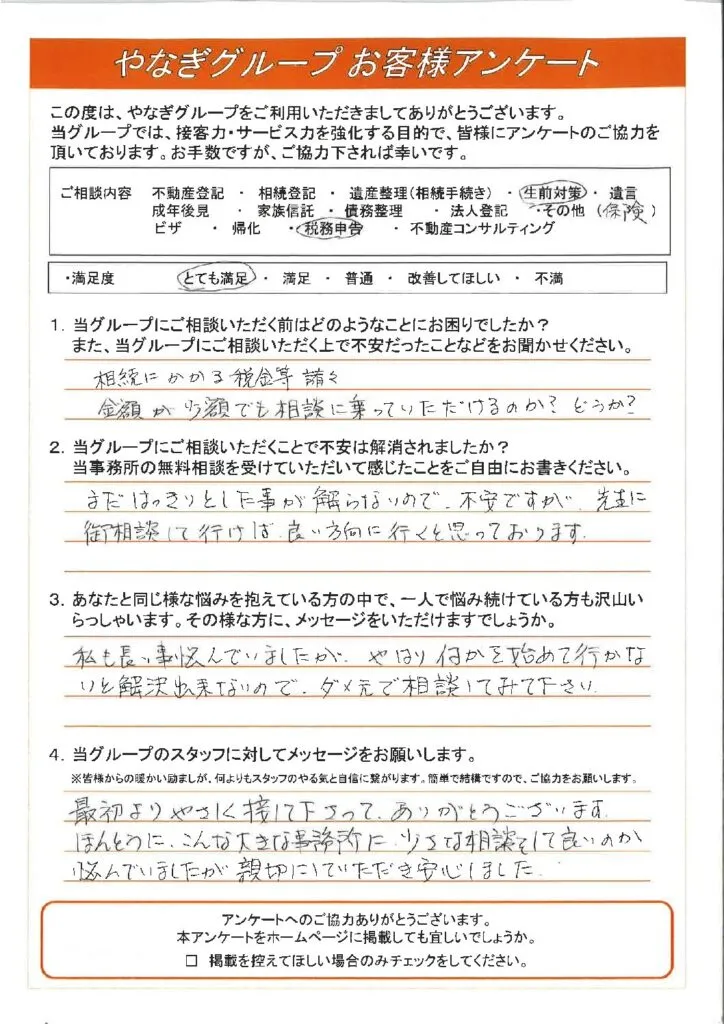 やなぎグループ お客様アンケート
この度は、やなぎグループをご利用いただきましてありがとうございます。
当グループでは、接客力・サービス力を強化する目的で、皆様にアンケートのご協力を
頂いております。お手数ですが、ご協力下されば幸いです。
ご相談内容 不動産登記 ・ 相続登記 ・ 遺産整理(相続手続き) ・ 生前対策 ・ 遺言
成年後見 ・ 家族信託 ・ 債務整理 ・ 法人登記 ・その他 (保険)
ビザ ・ 帰化 ・ 税務申告 ・ 不動産コンサルティング
・満足度 とても満足 ・ 満足 ・ 普通 ・ 改善してほしい ・ 不満
1. 当グループにご相談いただく前はどのようなことにお困りでしたか?
また、当グループにご相談いただく上で不安だったことなどをお聞かせください。
相続にかかる税金等 諸々
金額が少額でも相談に乗っていただけるのか? どうか?
2. 当グループにご相談いただくことで不安は解消されましたか?
当事務所の無料相談を受けていただいて感じたことをご自由にお書きください。
まだはっきりとした事が解らないので、不安ですが、先生に
御相談して行けば、良い方向に行くと思っております。
3. あなたと同じ様な悩みを抱えている方の中で、一人で悩み続けている方も沢山い
らっしゃいます。その様な方に、メッセージをいただけますでしょうか。
私も長い事悩んでいましたが、やはり何かを始めて行かな
いと解決出来ないので、ダメ元で相談してみて下さい。
4. 当グループのスタッフに対してメッセージをお願いします。
※皆様からの暖かい励ましが、何よりもスタッフのやる気と自信に繋がります。簡単で結構ですので、ご協力をお願いします。
最初よりやさしく接して下さって、ありがとうございます。
ほんとうに、こんな大きな事務所に、少さな相談をして良いのか
悩んでいましたが親切にしていただき安心しました。
アンケートへのご協力ありがとうございます。
本アンケートをホームページに掲載しても宜しいでしょうか。
□ 掲載を控えてほしい場合のみチェックをしてください。